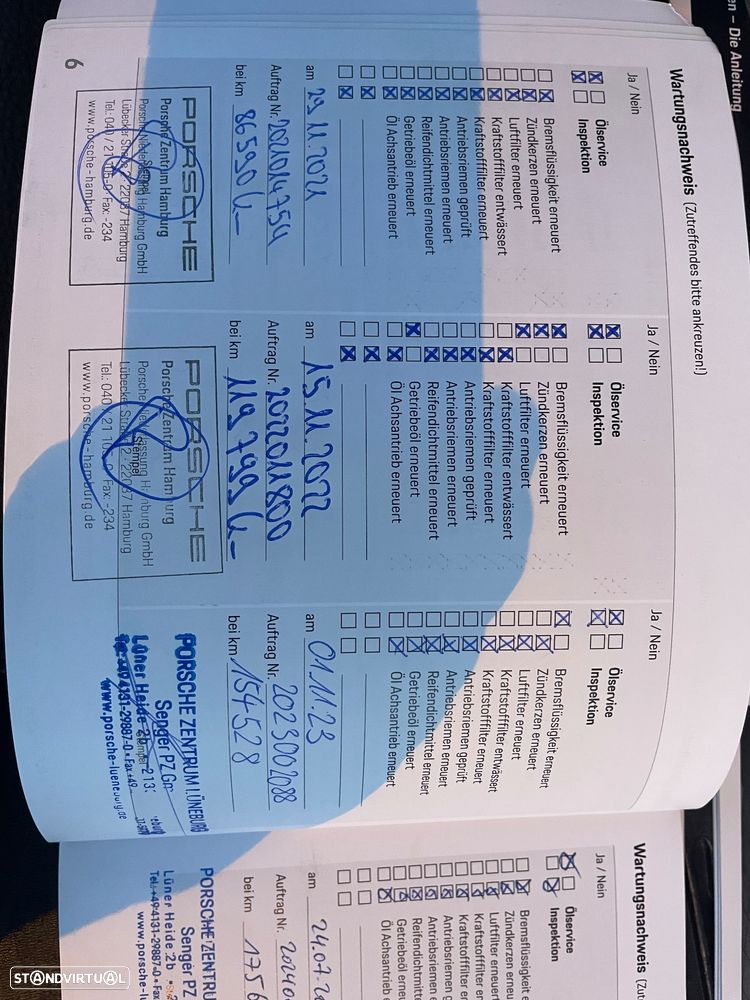 en – Die Anleitung
Wartungsnachweis (Zutreffendes bitte ankreuzen!)
Ja / Nein
Ölservice
Inspektion
Bremsflüssigkeit erneuert
Zündkerzen erneuert
Luftfilter erneuert
Kraftstofffilter entwässert
Kraftstofffilter erneuert
Antriebsriemen geprüft
Antriebsriemen erneuert
Reifendichtmittel erneuert
Getriebeöl erneuert
Öl Achsantrieb erneuert
am 29.11.2021
Auftrag Nr. 2021014754
bei km 86590
PORSCHE
Porsche Zentrum Hamburg
Porsche Niederlassung Hamburg GmbH
Lübecker Straße 2 · 22087 Hamburg
Tel.: 040 / 21 105-0 · Fax: -234
www.porsche-hamburg.de
6
Ja / Nein
Ölservice
Inspektion
Bremsflüssigkeit erneuert
Zündkerzen erneuert
Luftfilter erneuert
Kraftstofffilter entwässert
Kraftstofffilter erneuert
Antriebsriemen geprüft
Antriebsriemen erneuert
Reifendichtmittel erneuert
Getriebeöl erneuert
Öl Achsantrieb erneuert
am 15.11.2022
Auftrag Nr. 2022011800
bei km 119799
PORSCHE
Porsche Zentrum Hamburg
Porsche Niederlassung Hamburg GmbH
Lübecker Straße 2 · 22087 Hamburg
Stempel
Tel.: 040 / 21 105-0 Fax: -234
www.porsche-hamburg.de
Ja / Nein
Ölservice
Inspektion
Bremsflüssigkeit erneuert
Zündkerzen erneuert
Luftfilter erneuert
Kraftstofffilter entwässert
Kraftstofffilter erneuert
Antriebsriemen geprüft
Antriebsriemen erneuert
Reifendichtmittel erneuert
Getriebeöl erneuert
Öl Achsantrieb erneuert
am 01.11.23
Auftrag Nr. 2023002088
bei km 154528
PORSCHE ZENTRUM LÜNEBURG
Senger PZ
Lüner Heide
Tel.: +49 4131-29887-0 • Fax +49
www.porsche-lueneburg.de
Wartungsnachweis (Zut
Ja / Nein
Ölservice
Inspektion
Bremsflüssigkeit e
Zündkerzen erneu
Luftfilter erneuert
Kraftstofffilter en
Kraftstofffilter er
Antriebsriemen g
Antriebsriemen e
Reifendichtmittel
Getriebeöl erneue
Öl Achsantrieb er
am 24.07.2
Auftrag Nr. 20240
bei km 1756
PORSCHE ZENTRU
Senger PZ
Lüner Heide 2b
Tel.: +49 4131-29887-0 • Fax
www.porsche-lu
STANDVIRTUAL